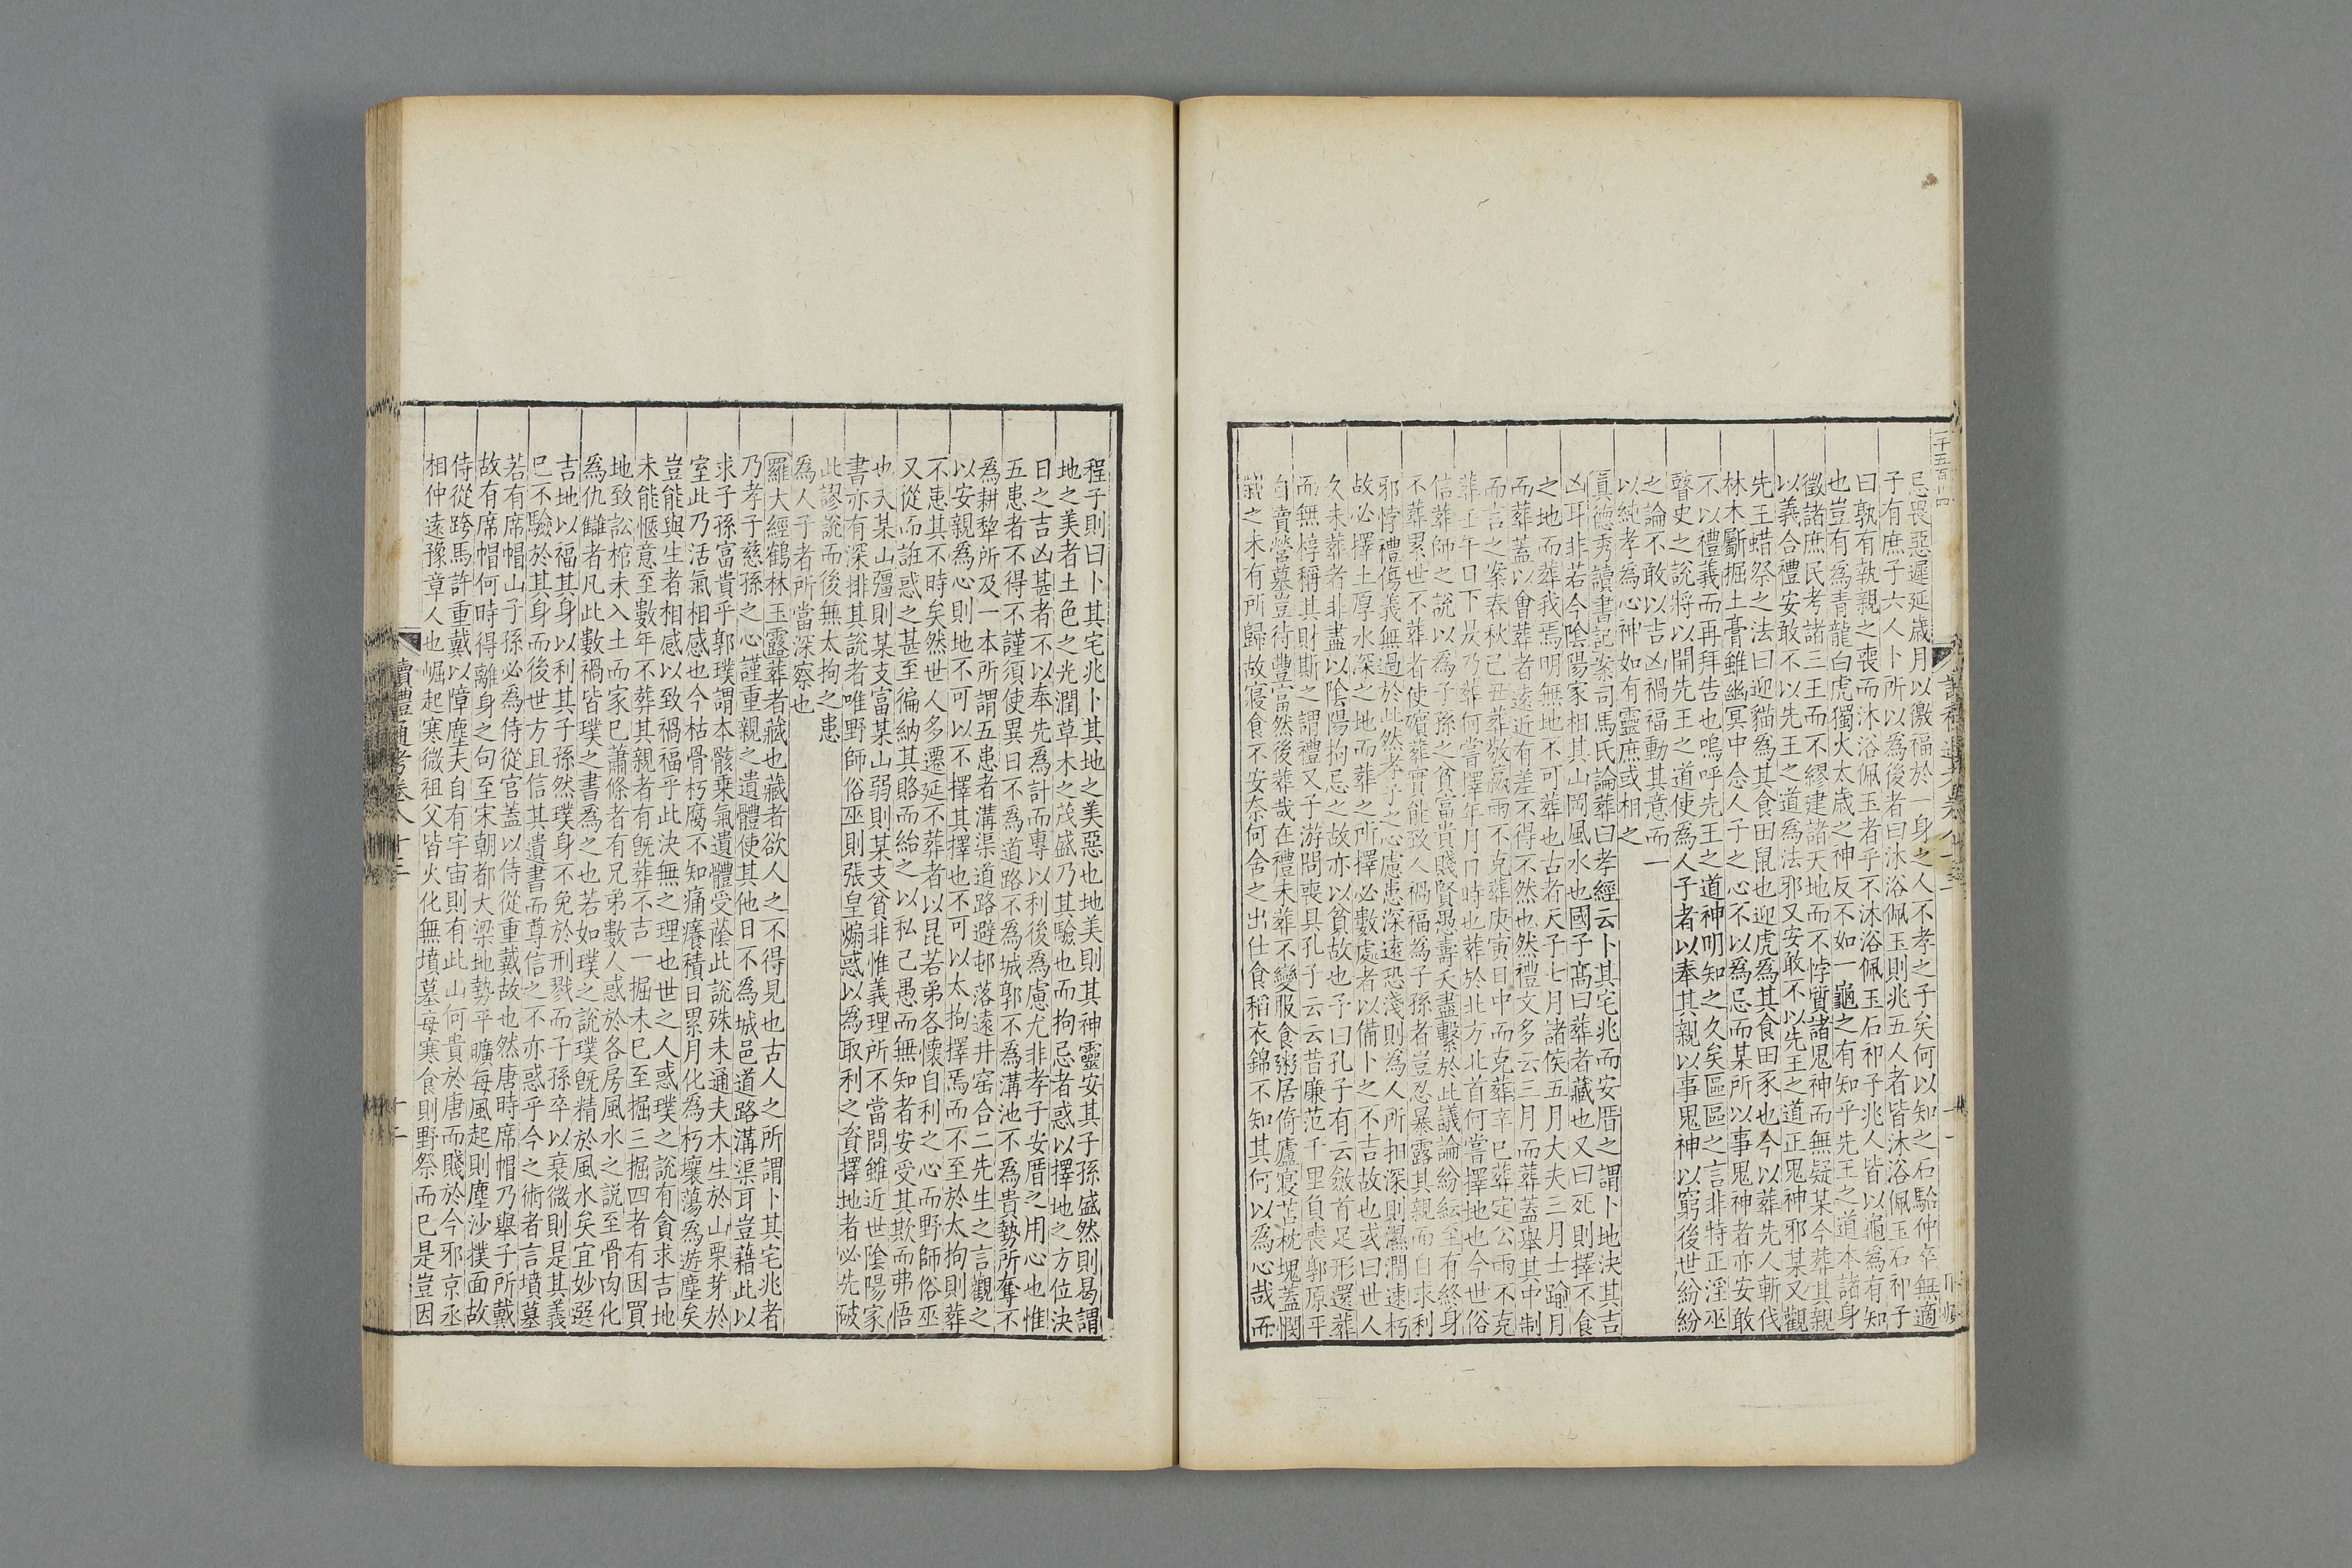 忌畏惡遲延歲月以徼福於一身之人不孝之子矣何以知之石駘仲卒無適
子有庶子六人卜所以為後者曰沐浴佩玉則兆五人者皆沐浴佩玉石祁子
曰孰有執親之喪而沐浴佩玉者乎不沐浴佩玉石祁子兆人皆以龜為有知
也豈有為青龍白虎獨火太歲之神反不如一龜之有知乎先王之道本諸身
徵諸庶民考諸三王而不繆建諸天地而不悖質諸鬼神而無疑某今葬其親
以義合禮安敢不以先王之道為法邪又安敢不以先王之道正鬼神邪某又觀
先王蜡祭之法曰迎貓為其食田鼠也迎虎為其食田豕也今以葬先人斬伐
林木斸掘土膏雖幽冥中念人子之心不以為忌而某所以事鬼神者亦安敢
不以禮義而再拜告也嗚呼先王之道神明知之久矣區區之言非特正淫巫
瞽史之說將以開先王之道使為人子者以奉其親以事鬼神以窮後世紛紛
之論不敢以吉凶禍福動其意而一
以純孝為心神如有靈庶或相之
真德秀讀書記案司馬氏論葬曰孝經云卜其宅兆而安厝之謂卜地決其吉
凶耳非若今陰陽家相其山岡風水也國子高曰葬者藏也又曰死則擇不食
之地而葬我焉明無地不可葬也古者天子七月諸侯五月大夫三月士踰月
而葬蓋以會葬者遠近有差不得不然也然禮文多云三月而葬蓋舉其中制
而言之案春秋己丑葬敬嬴雨不克葬庚寅日中而克葬辛巳葬定公雨不克
葬壬午日下昃乃葬何嘗擇年月日時也葬於北方北首何嘗擇地也今世俗
信葬師之說以為子孫之貧富貴賤賢愚壽夭盡繫於此議論紛紜至有終身
不葬累世不葬者使殯葬實能致人禍福為子孫者豈忍暴露其親而自求利
邪悖禮傷義無過於此然孝子之心慮患深遠恐淺則為人所抇深則濕潤速朽
故必擇土厚水深之地而葬之所擇必數處者以備卜之不吉故也或曰世人
久未葬者非盡以陰陽拘忌之故亦以貧故也子曰孔子有云斂首足形還葬
而無椁稱其財斯之謂禮又子游問喪具孔子云云昔廉范千里負喪郭原平
自賣營墓豈待豐富然後葬哉在禮未葬不變服食粥居倚廬寢苫枕塊蓋憫
親之未有所歸故寢食不安奈何舍之出仕食稻衣錦不知其何以為心哉而
程子則曰卜其宅兆卜其地之美惡也地美則其神靈安其子孫盛然則曷謂
地之美者土色之光潤草木之茂盛乃其驗也而拘忌者惑以擇地之方位決
日之吉凶甚者不以奉先為計而專以利後為慮尤非孝子安厝之用心也惟
五患者不得不謹須使異日不為道路不為城郭不為溝池不為貴勢所奪不
為耕犂所及一本所謂五患者溝渠道路避邨落遠井窑合二先生之言觀之
以安親為心則地不可以不擇其擇也不可以太拘擇焉而不至於太拘則葬
不患其不時矣然世人多遷延不葬者以昆若弟各懷自利之心而野師俗巫
又從而誑惑之甚至徧納其賂而紿之以私己愚而無知者安受其欺而弗悟
也夫某山彊則某支富某山弱則某支貧非惟義理所不當問雖近世陰陽家
書亦有深排其說者唯野師俗巫則張皇煽惑以為取利之資擇地者必先破
此謬說而後無太拘之患
為人子者所當深察也
羅大經鶴林玉露葬者藏也藏者欲人之不得見也古人之所謂卜其宅兆者
乃孝子慈孫之心謹重親之遺體使其他日不為城邑道路溝渠耳豈藉此以
求子孫富貴乎郭璞謂本骸乘氣遺體受蔭此說殊未通夫木生於山栗芽於
室此乃活氣相感也今枯骨朽腐不知痛癢積日累月化為朽壤蕩為遊塵矣
豈能與生者相感以致禍福乎此決無之理也世之人惑璞之說有貪求吉地
未能愜意至數年不葬其親者有既葬不吉一掘未已至掘三掘四者有因買
地致訟棺未入土而家已蕭條者有兄弟數人惑於各房風水之說至骨肉化
為仇讎者凡此數禍皆璞之書為之也若如璞之說璞既精於風水矣宜妙選
吉地以福其身以利其子孫然璞身不免於刑戮而子孫卒以衰微則是其義
已不驗於其身而後世方且信其遺書而尊信之不亦惑乎今之術者言墳墓
若有席帽山子孫必為侍從官蓋以侍從重戴故也然唐時席帽乃舉子所戴
故有席帽何時得離身之句至宋朝都大梁地勢平曠每風起則塵沙撲面故
侍從跨馬許重戴以障塵夫自有宇宙則有此山何貴於唐而賤於今邪京丞
相仲遠豫章人也崛起寒微祖父皆火化無墳墓每寒食則野祭而已是豈因
讀禮通考卷八十三